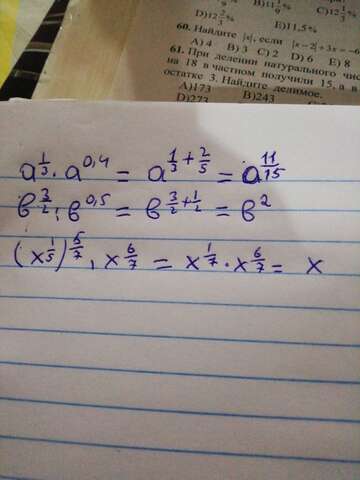 B) 11 1/9 %
C) 12 1/3 %
D) 12 2/3 %
E) 11,5%
60. Найдите |x|, если |x−2|+3x=−6
A) 4 B) 3 C) 2 D) 6 E) 8
61. При делении натурального чис
на 18 в частном получили 15, а в
остатке 3. Найдите делимое.
A) 173 B) 243
D) 273
a^(1/3) · a^(0,4) = a^(1/3 + 2/5) = a^(11/15)
b^(3/2) : b^(0,5) = b^(3/2 + 1/2) = b^2
(x^(1/5))^(5/7) · x^(6/7) = x^(1/7) · x^(6/7) = x